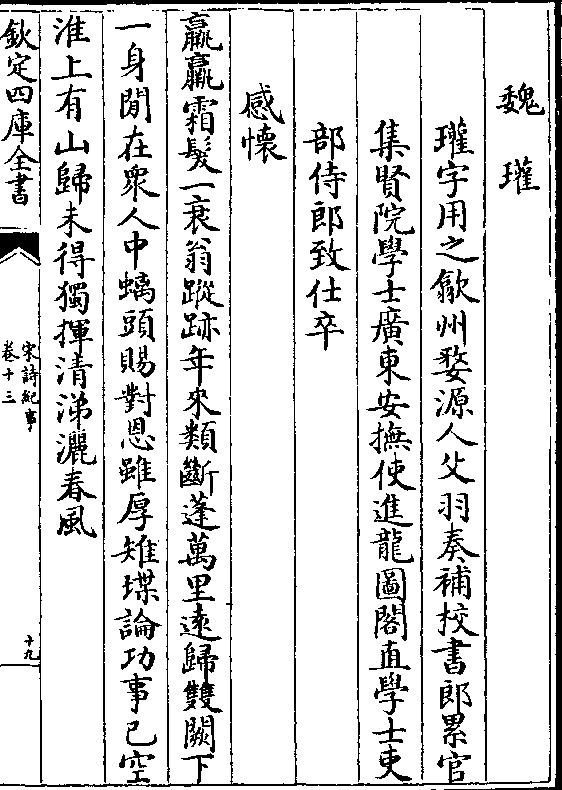 魏瓘
瓘字用之歙州婺源人父羽奏補校書郎累官
集賢院學士廣東安撫使進龍圖閣直學士吏
部侍郎致仕卒
感懷
羸羸霜髮一衰翁蹤跡年來類斷蓬萬里逺歸雙闕下
一身閒在衆人中螭頭賜對恩雖厚雉堞論功事已空
淮上有山歸未得獨揮清涕灑春風
欽定四庫全書
宋詩紀事
卷十三
十九